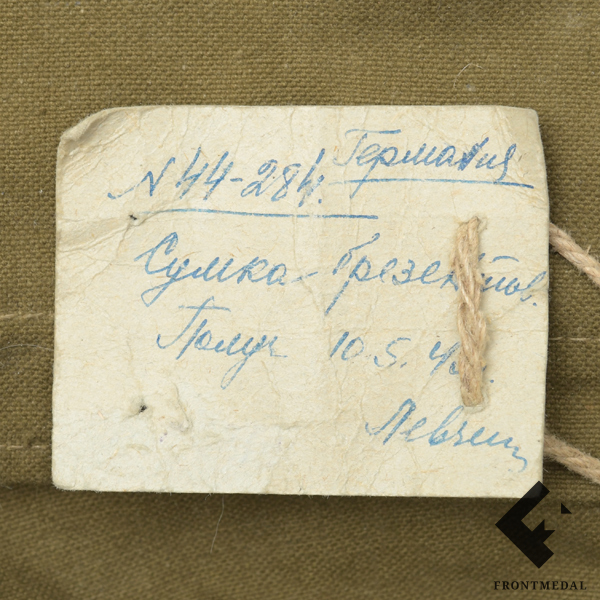 Германия
N 44-284.
Сумка - брезентов.
Получ 10.5.45.
FRONTMEDAL